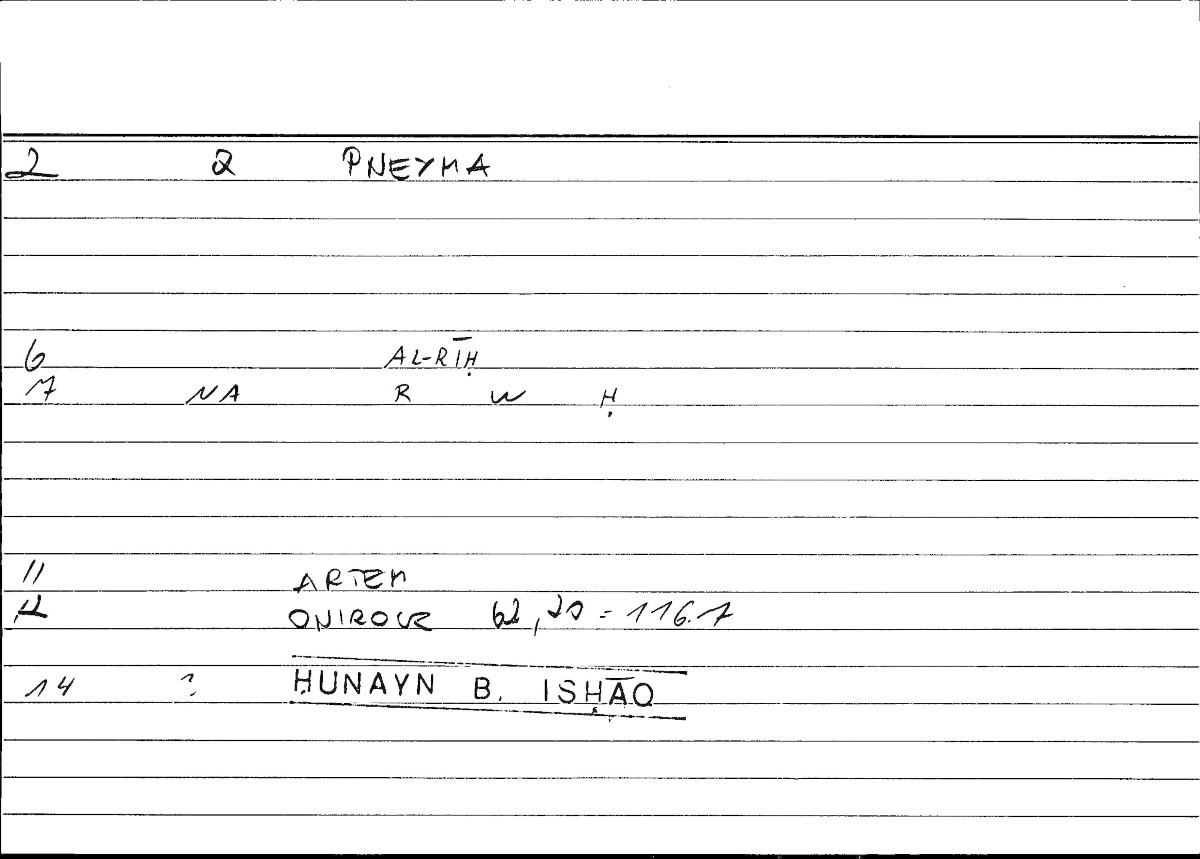 2 2 PNEYMA
6 AL-RĪḤ
7 NA R W Ḥ
11 ARTEM
12 ONIROCR 62,20 = 116.7
14 ? ḤUNAYN B. ISḤĀQ